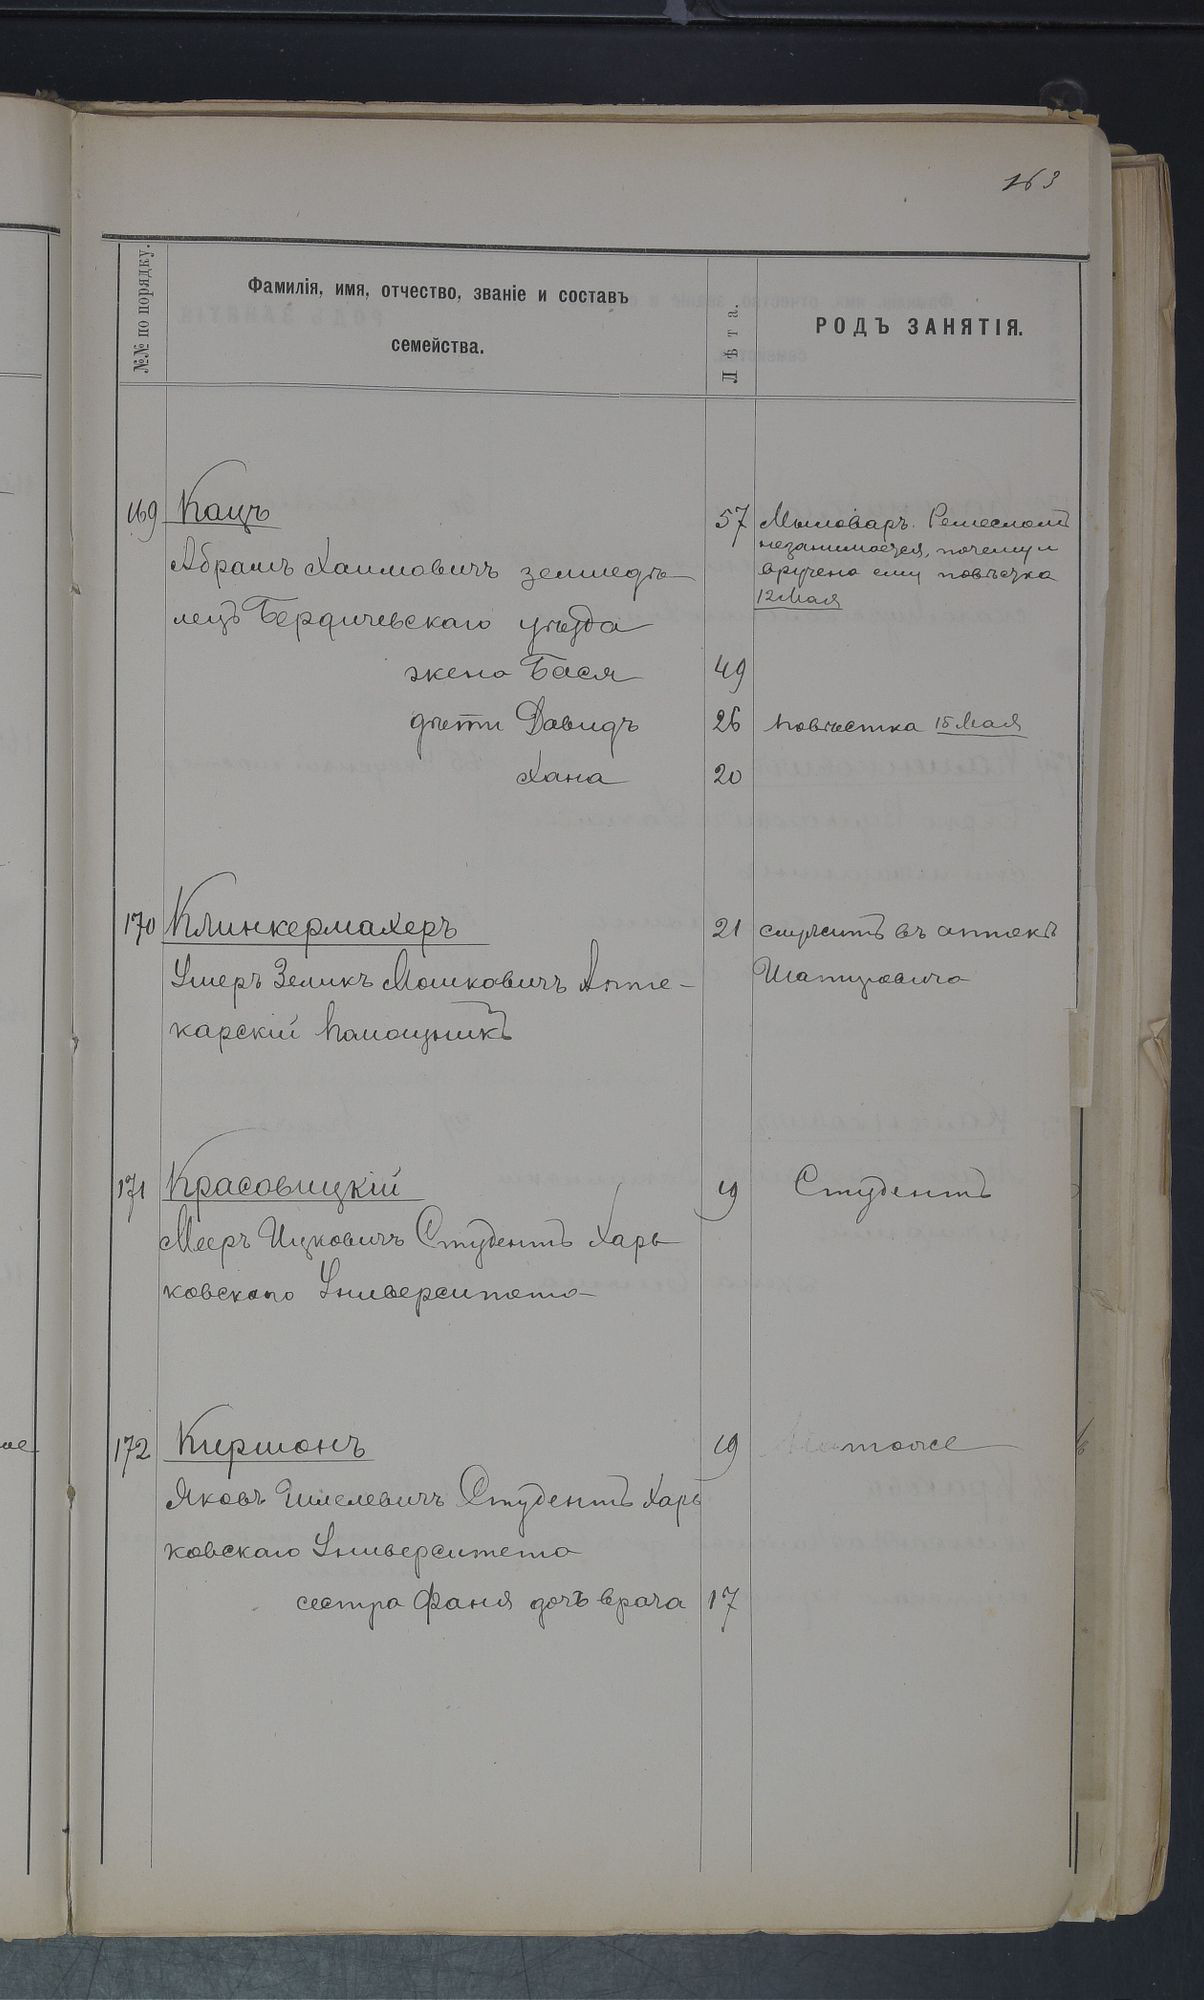 163
№№ по порядку.
Фамилія, имя, отчество, званіе и составъ
семейства.
Лѣта.
РОДЪ ЗАНЯТІЯ.
169 Кацъ 57 Мыловаръ. Ремесломъ
незанимается, почему и
Абрамъ Хаимовичъ земледѣ- вручена ему повѣстка
12 Мая
лецъ Бердичевскаго уѣзда
жена Бася 49
дѣти Давидъ 26 повѣстка 15 Мая
Хана 20
170 Клинкермахеръ 21 служитъ въ аптекѣ
Умеръ Зеликъ Мошковичъ Апте- Шапировича
карскій помощникъ
171 Красовицкій 19 Студентъ
Мееръ Ицковичъ Студентъ Харь
ковскаго Университета
172 Киршонъ 19 тоже
Яковъ Шмелевичъ Студентъ Харь
ковскаго Университета
сестра Фаня дочь врача 17